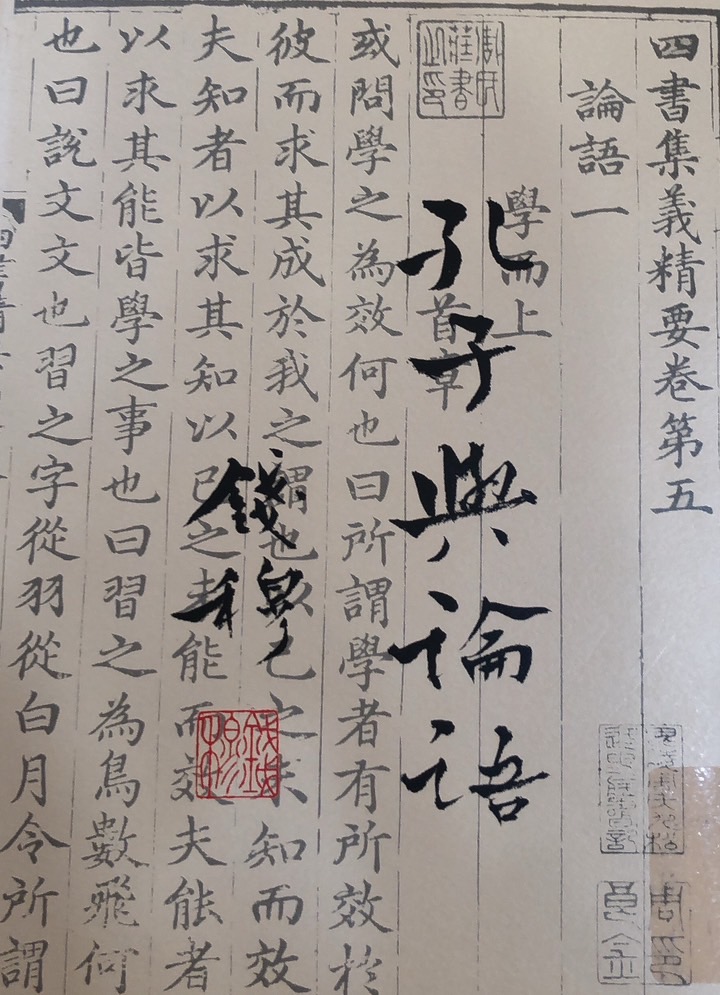 四書集義精要卷第五
論語一
學而上
首章
孔子與論語
或問學之為效何也曰所謂學者有所效於
彼而求其成於我之謂也以己之未知而效
錢穆
夫知者以求其知以已之未能而效夫能者
以求其能皆學之事也曰習之為鳥數飛何
也曰說文文也習之字從羽從白月令所謂